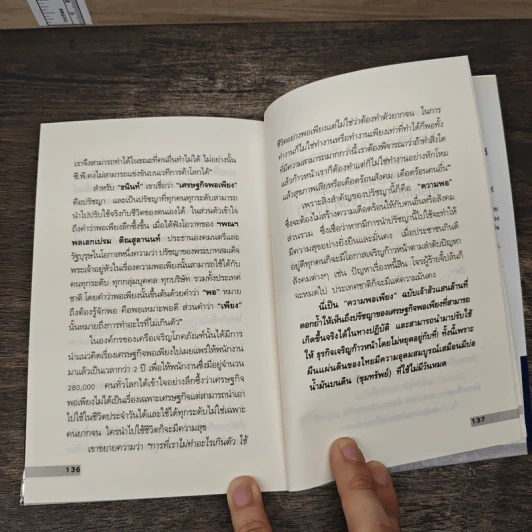 เขาจึงสามารถทำได้ในขณะที่คนอื่นทำไม่ได้ ไม่อย่างนั้น
ซี.พี.คงไม่สามารถแข่งขันบนเวทีการค้าโลกได้"
สำหรับ "ธนินท์" เขาเชื่อว่า "เศรษฐกิจพอเพียง"
คือปรัชญา และเป็นปรัชญาที่ทุกคนทุกระดับสามารถ
นำไปปรับใช้จริงกับชีวิตของตนเองได้ ในส่วนตัวเข้าใจ
ถึงคำว่าพอเพียงลึกซึ้งขึ้น เมื่อได้ฟังโอวาทของ "พณฯ
พลเอกเปรม ติณสูลานนท์ ประธานองคมนตรีและ
รัฐบุรุษในโอกาสหนึ่งความว่า ปรัชญาของพระบาทสมเด็จ
พระเจ้าอยู่หัวในเรื่องความพอเพียงนั้นสามารถใช้ได้กับ
คนทุกระดับ ทุกกลุ่มบุคคล ทุกบริษัท รวมทั้งประเทศ
ชาติ โดยคำว่าพอเพียงนั้นขึ้นต้นด้วยคำว่า "พอ" หมาย
ถึงต้องรู้จักพอ คือพอเหมาะพอดี ส่วนคำว่า "เพียง"
นั้นหมายถึงการทำอะไรที่ไม่เกินตัว"
ในองค์กรของเครือเจริญโภคภัณฑ์นั้นได้มีการ
นำแนวคิดเรื่องเศรษฐกิจพอเพียงไปเผยแพร่ให้พนักงาน
มาแล้วเป็นเวลากว่า 2 ปี เพื่อให้พนักงานซึ่งมีอยู่จำนวน
280,000 คนทั่วโลกได้เข้าใจอย่างลึกซึ้งว่าเศรษฐกิจ
พอเพียงไม่ได้เป็นเรื่องเฉพาะเศรษฐกิจแต่สามารถนำเอา
ไปใช้ในชีวิตประจำวันได้และใช้ได้ทุกระดับไม่ใช่เฉพาะ
คนยากจน ใครนำไปใช้ชีวิตก็จะมีความสุข
เขาขยายความว่า "การที่เราไม่ทำอะไรเกินตัว ใช้
136
ชีวิตอย่างพอเพียงแต่ไม่ใช่ว่าต้องทำตัวยากจน ในการ
ทำงานก็ไม่ใช่ทำงานหรือทำงานเพียงเท่าที่ทำได้ก็พอทั้ง
ๆมีความสามารถมากกว่านี้ เราต้องพิจารณาว่าถ้าทำสิ่งใด
แล้วก้าวหน้าเราก็ต้องทำแต่ก็ไม่ใช่ทำงานอย่างหักโหม
แล้วสุขภาพเสียหรือเดือดร้อนสังคม เดือดร้อนคนอื่น"
เพราะสิ่งสำคัญของปรัชญานี้ก็คือ "ความพอ"
ซึ่งจะต้องไม่สร้างความเดือดร้อนให้กับคนอื่นหรือสังคม
ส่วนรวม ซึ่งเชื่อว่าหากมีการนำปรัชญานี้ไปใช้จะทำให้
มีความสุขอย่างยั่งยืนและมั่นคง เมื่อประชาชนกินดี
อยู่ดีทุกคนก็จะมีโอกาสเจริญก้าวหน้าตามลำดับปัญหา
สังคมต่างๆ เช่น ปัญหาเรื่องหนี้สิน โจรผู้ร้ายจี้ปล้นก็
จะหมดไป ประเทศชาติก็จะมีแต่ความมั่นคง
นี่เป็น "ความพอเพียง" ฉบับเจ้าสัวแสนล้านที่
ตอกย้ำให้เห็นถึงปรัชญาของเศรษฐกิจพอเพียงที่สามารถ
เกิดขึ้นจริงได้ในทางปฏิบัติ และสามารถนำมาปรับใช้
ให้ ธุรกิจเจริญก้าวหน้าโดยไม่หยุดอยู่กับที่! ทั้งนี้เพราะ
ผืนแผ่นดินของไทยมีความอุดมสมบูรณ์เสมือนมีบ่อ
น้ำมันบนดิน (ขุมทรัพย์) ที่ใช้ไม่มีวันหมด
137